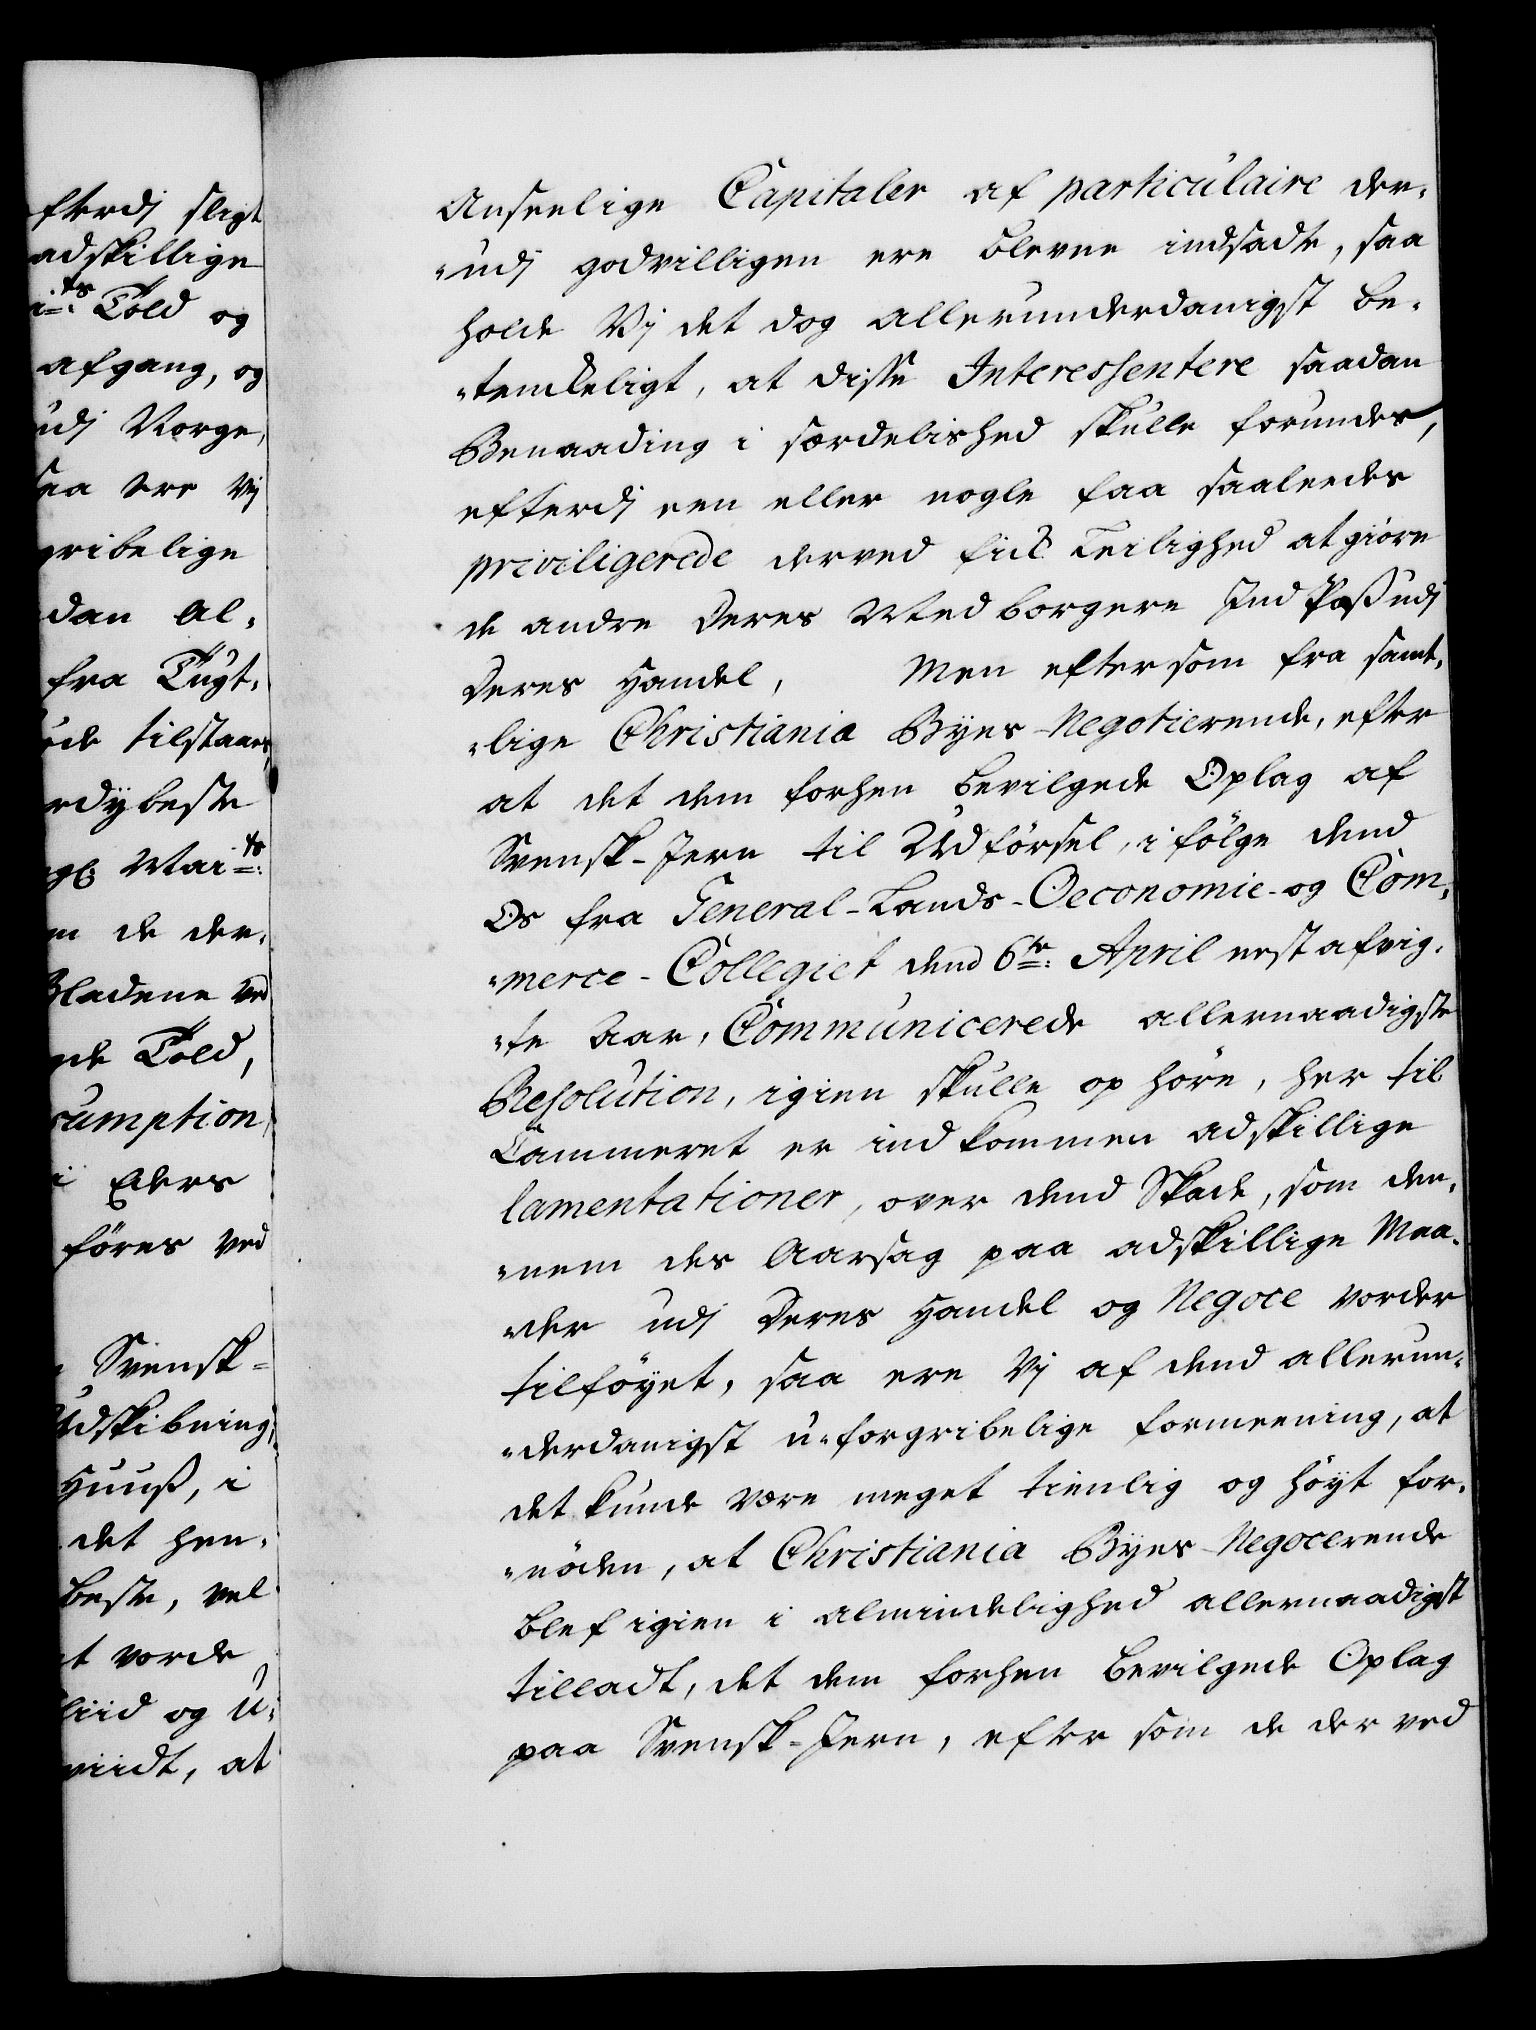 fterdj sligt
adskillige
i.ts Told og
afgang, og
udj Norge,
saa ere vj
gribelige
dan Al-
fra Tugt-
de tilstaaes,
rdybeste
gl. Mai.ts
m de der-
Bladene ved
nde Told,
sumption
i Eders
föres ved
Svensk-
Udskibning,
Huuß, i
det hen-
beste, vel
t vorde
liid og u-
viidt, at
Anseelige Capitaler af particulaire der-
-udj godvilligen ere blevne indsadte, saa
holde Vj det dog allerunderdanigst be-
-tenckeligt, at disse Interessentere saadan
Benaading i særdelished skulle forundes,
efterdj een eller nogle faa saaleedes
priviligerede derved fick Leilighed at giöre
de andre Deres Medborgere Ind Paß udj
Deres Handel, Men efter som fra samt-
-lige Christiania Byes Negotierende, efter
at det dem forhen bevilgede Oplag af
Svensk-Jern til Udförsel, i fölge dend
Os fra General-Lands-Oeconomie- og Com-
-merce-Collegiet dend 6te April nest afvig-
-te Aar, Communicerede allernaadigste
Resolution, igien skulle ophöre, her til
Cammeret er indkommen adskillige
lamentationer, over dend Skade, som den-
-nem des Aarsag paa adskillige Maa-
-der udj Deres Handel og Negoce vorder
tilföyet, saa ere Vj af dend allerun-
-derdanigst u-forgribelige formeening, at
det kunde være meget tienlig og höyt for-
-nöden, at Christiania Byes Negocerende
blef igien i almindelighed allernaadigst
tilladt, det dem forhen bevilgede Oplag
paa Svensk-Jern, efter som de der ved